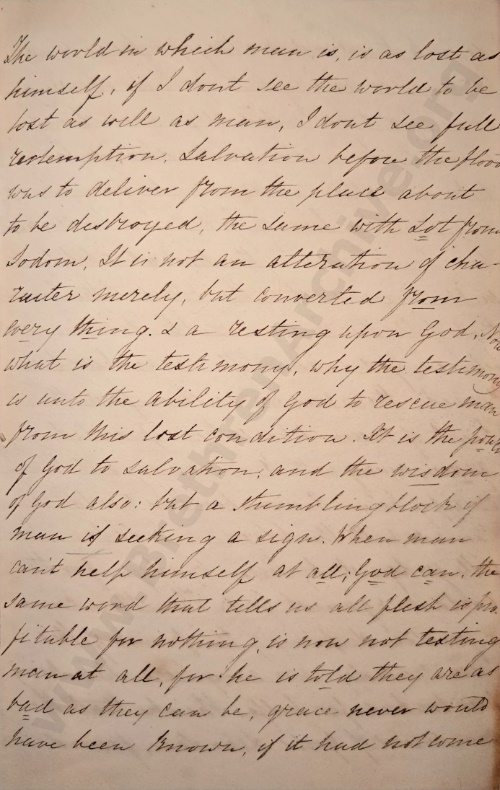 The world in which man is, is as lost as
himself, if I dont see the world to be
lost as well as man, I dont see full
redemption. Salvation before the flood
was to deliver from the place about
to be destroyed, the same with Lot from
Sodom. It is not an alteration of cha-
racter merely, but converted from
every thing. & a resting upon God. Now
what is the testimony, why the testimony
is unto the ability of God to rescue man
from this lost condition. It is the power
of God to salvation, and the wisdom
of God also: but a stumbling block if
man is seeking a sign. When man
cant help himself at all; God can, the
same word that tells us all flesh is pro
fitable for nothing, is now not testing
man at all, for he is told they are as
bad as they can be, grace never would
have been known, if it had not come
www.BrethrenArchive.org